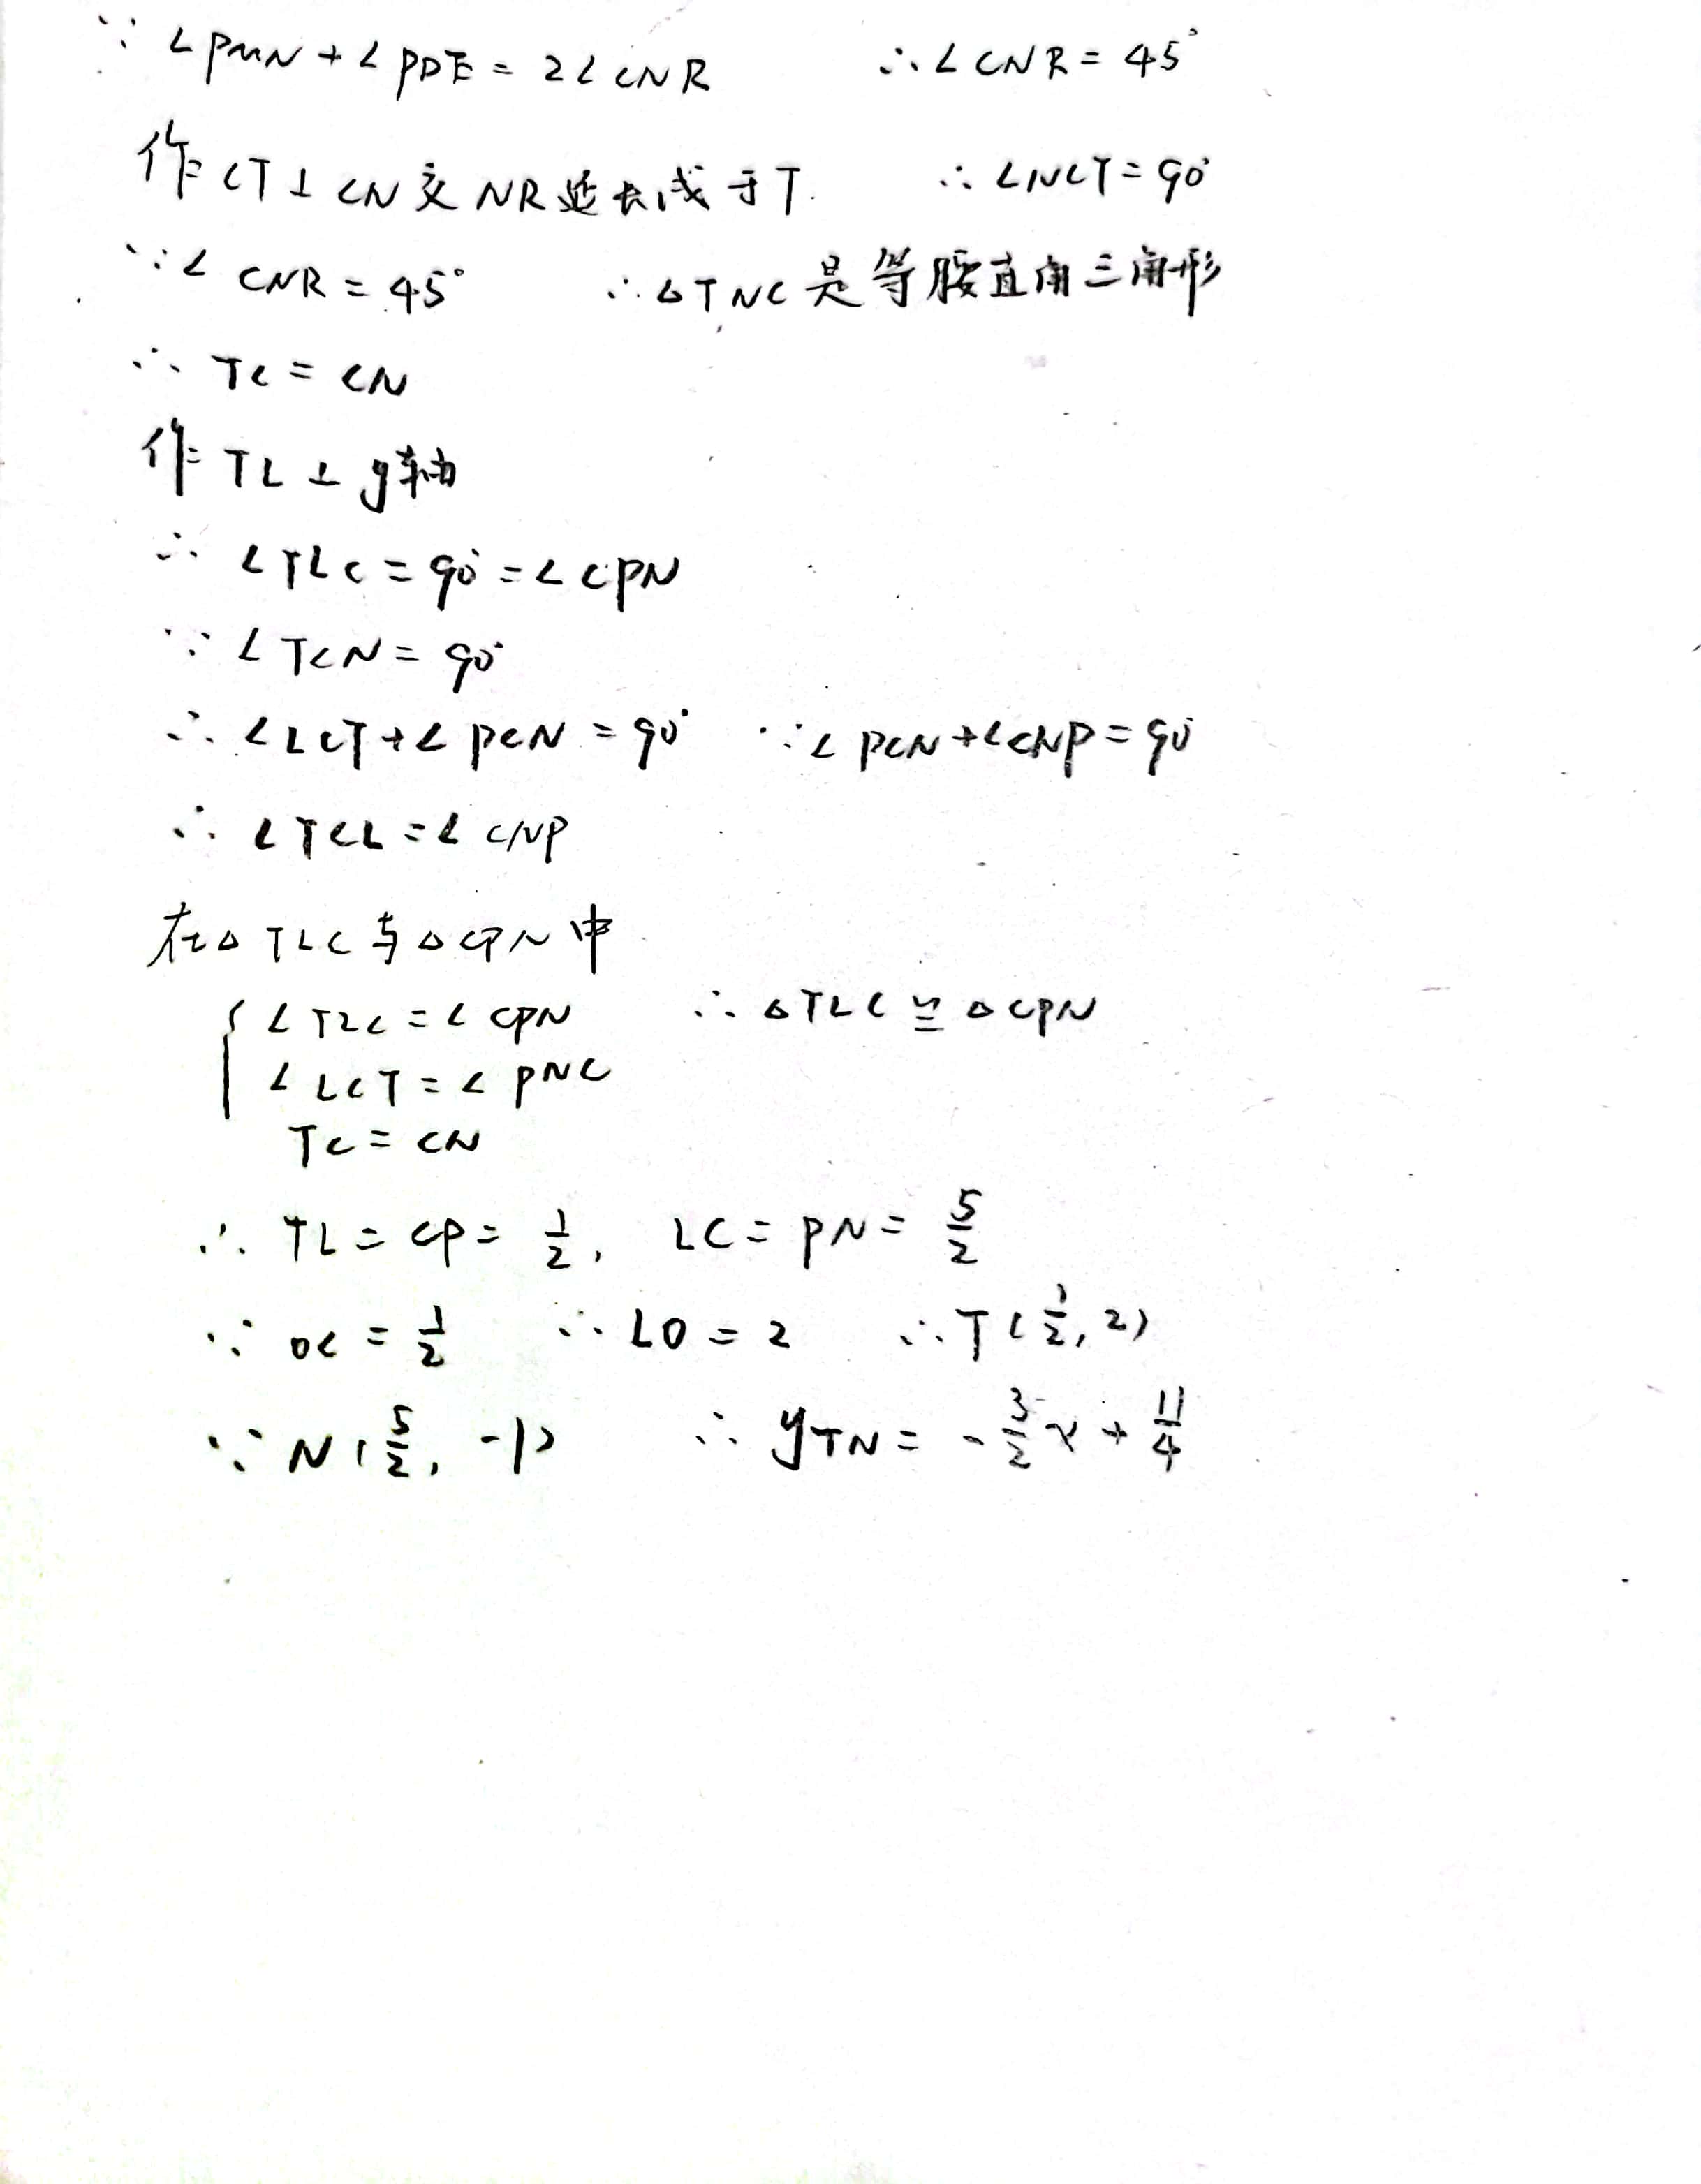 ∵ ∠PMN + ∠PDE = 2∠CNR ∴ ∠CNR = 45°
作 CT ⊥ CN 交 NR 延长线于 T. ∴ ∠NCT = 90°
∵ ∠CNR = 45° ∴ △TNC 是等腰直角三角形
∴ TC = CN
作 TL ⊥ y轴
∴ ∠TLC = 90° = ∠CPN
∵ ∠TCN = 90°
∴ ∠LCT + ∠PCN = 90° ∵ ∠PCN + ∠CNP = 90°
∴ ∠TCL = ∠CNP
在△TLC与△CPN中
{ ∠TLC = ∠CPN ∴ △TLC ≌ △CPN
∠LCT = ∠PNC
TC = CN
∴ TL = CP = 1/2, LC = PN = 5/2
∵ OC = 1/2 ∴ LO = 2 ∴ T(1/2, 2)
∵ N(5/2, -1) ∴ yTN = -3/2x + 11/4